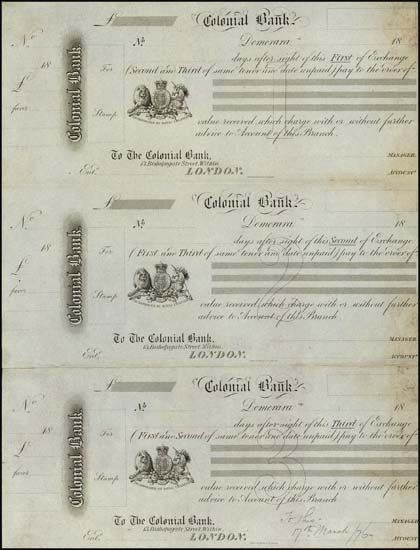 Colonial Bank
£
Colonial Bank.
No
18
No
Demerara
18
days after sight of this First of Exchange
£
For
(Second and Third of same tenor and date unpaid) pay to the order of
favor
Stamp
value received, which charge with or without further
advice to Account of this Branch.
To The Colonial Bank,
13, Bishopsgate Street, Within,
MANAGER.
Ent.
LONDON.
ACCOUNT.
Colonial Bank
£
Colonial Bank.
No
18
No
Demerara
18
days after sight of this Second of Exchange
£
For
(First and Third of same tenor and date unpaid) pay to the order of
favor
Stamp
value received, which charge with or without further
advice to Account of this Branch
To The Colonial Bank,
13, Bishopsgate Street, Within,
MANAGER
Ent.
LONDON.
ACCOUNT.
Colonial Bank
£
Colonial Bank.
No
18
No
Demerara
18
days after sight of this Third of Exchange
£
For
(First and Second of same tenor and date unpaid) pay to the order of
favor
Stamp
value received, which charge with or without further
advice to Account of this Branch
To The Colonial Bank,
13, Bishopsgate Street, Within,
MANAGER
Ent.
LONDON.
March
ACCOUNT